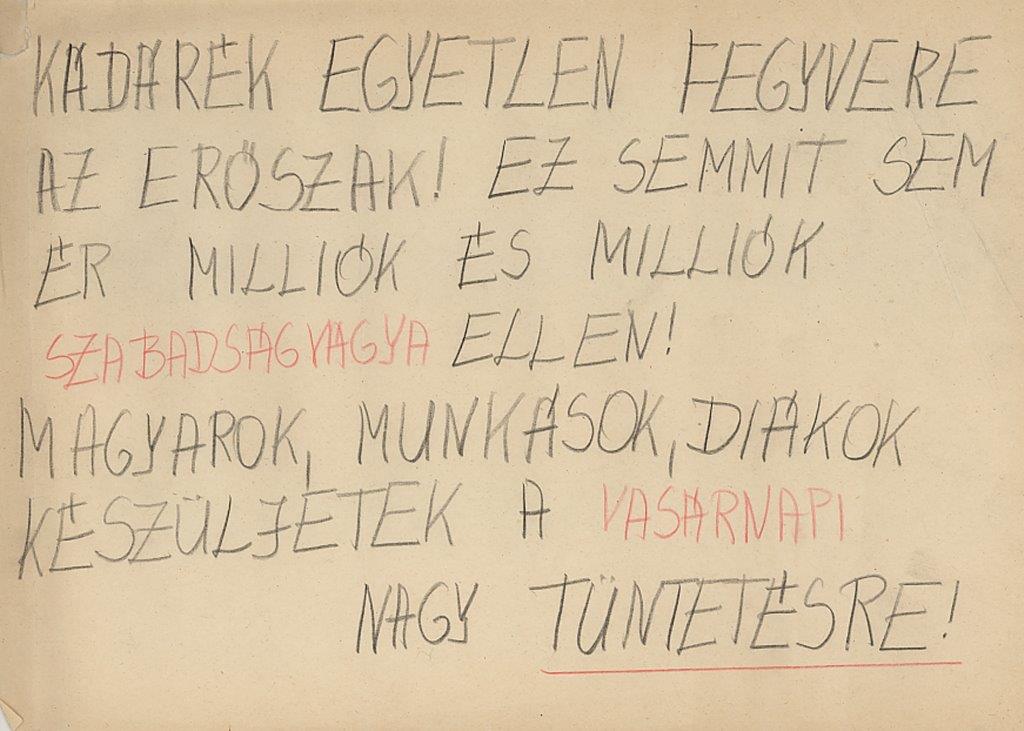 KÁDÁRÉK EGYETLEN FEGYVERE
AZ ERŐSZAK! EZ SEMMIT SEM
ÉR MILLIÓK ÉS MILLIÓK
SZABADSÁGVÁGYA ELLEN!
MAGYAROK, MUNKÁSOK, DIÁKOK
KÉSZÜLJETEK A VASÁRNAPI
NAGY TÜNTETÉSRE!